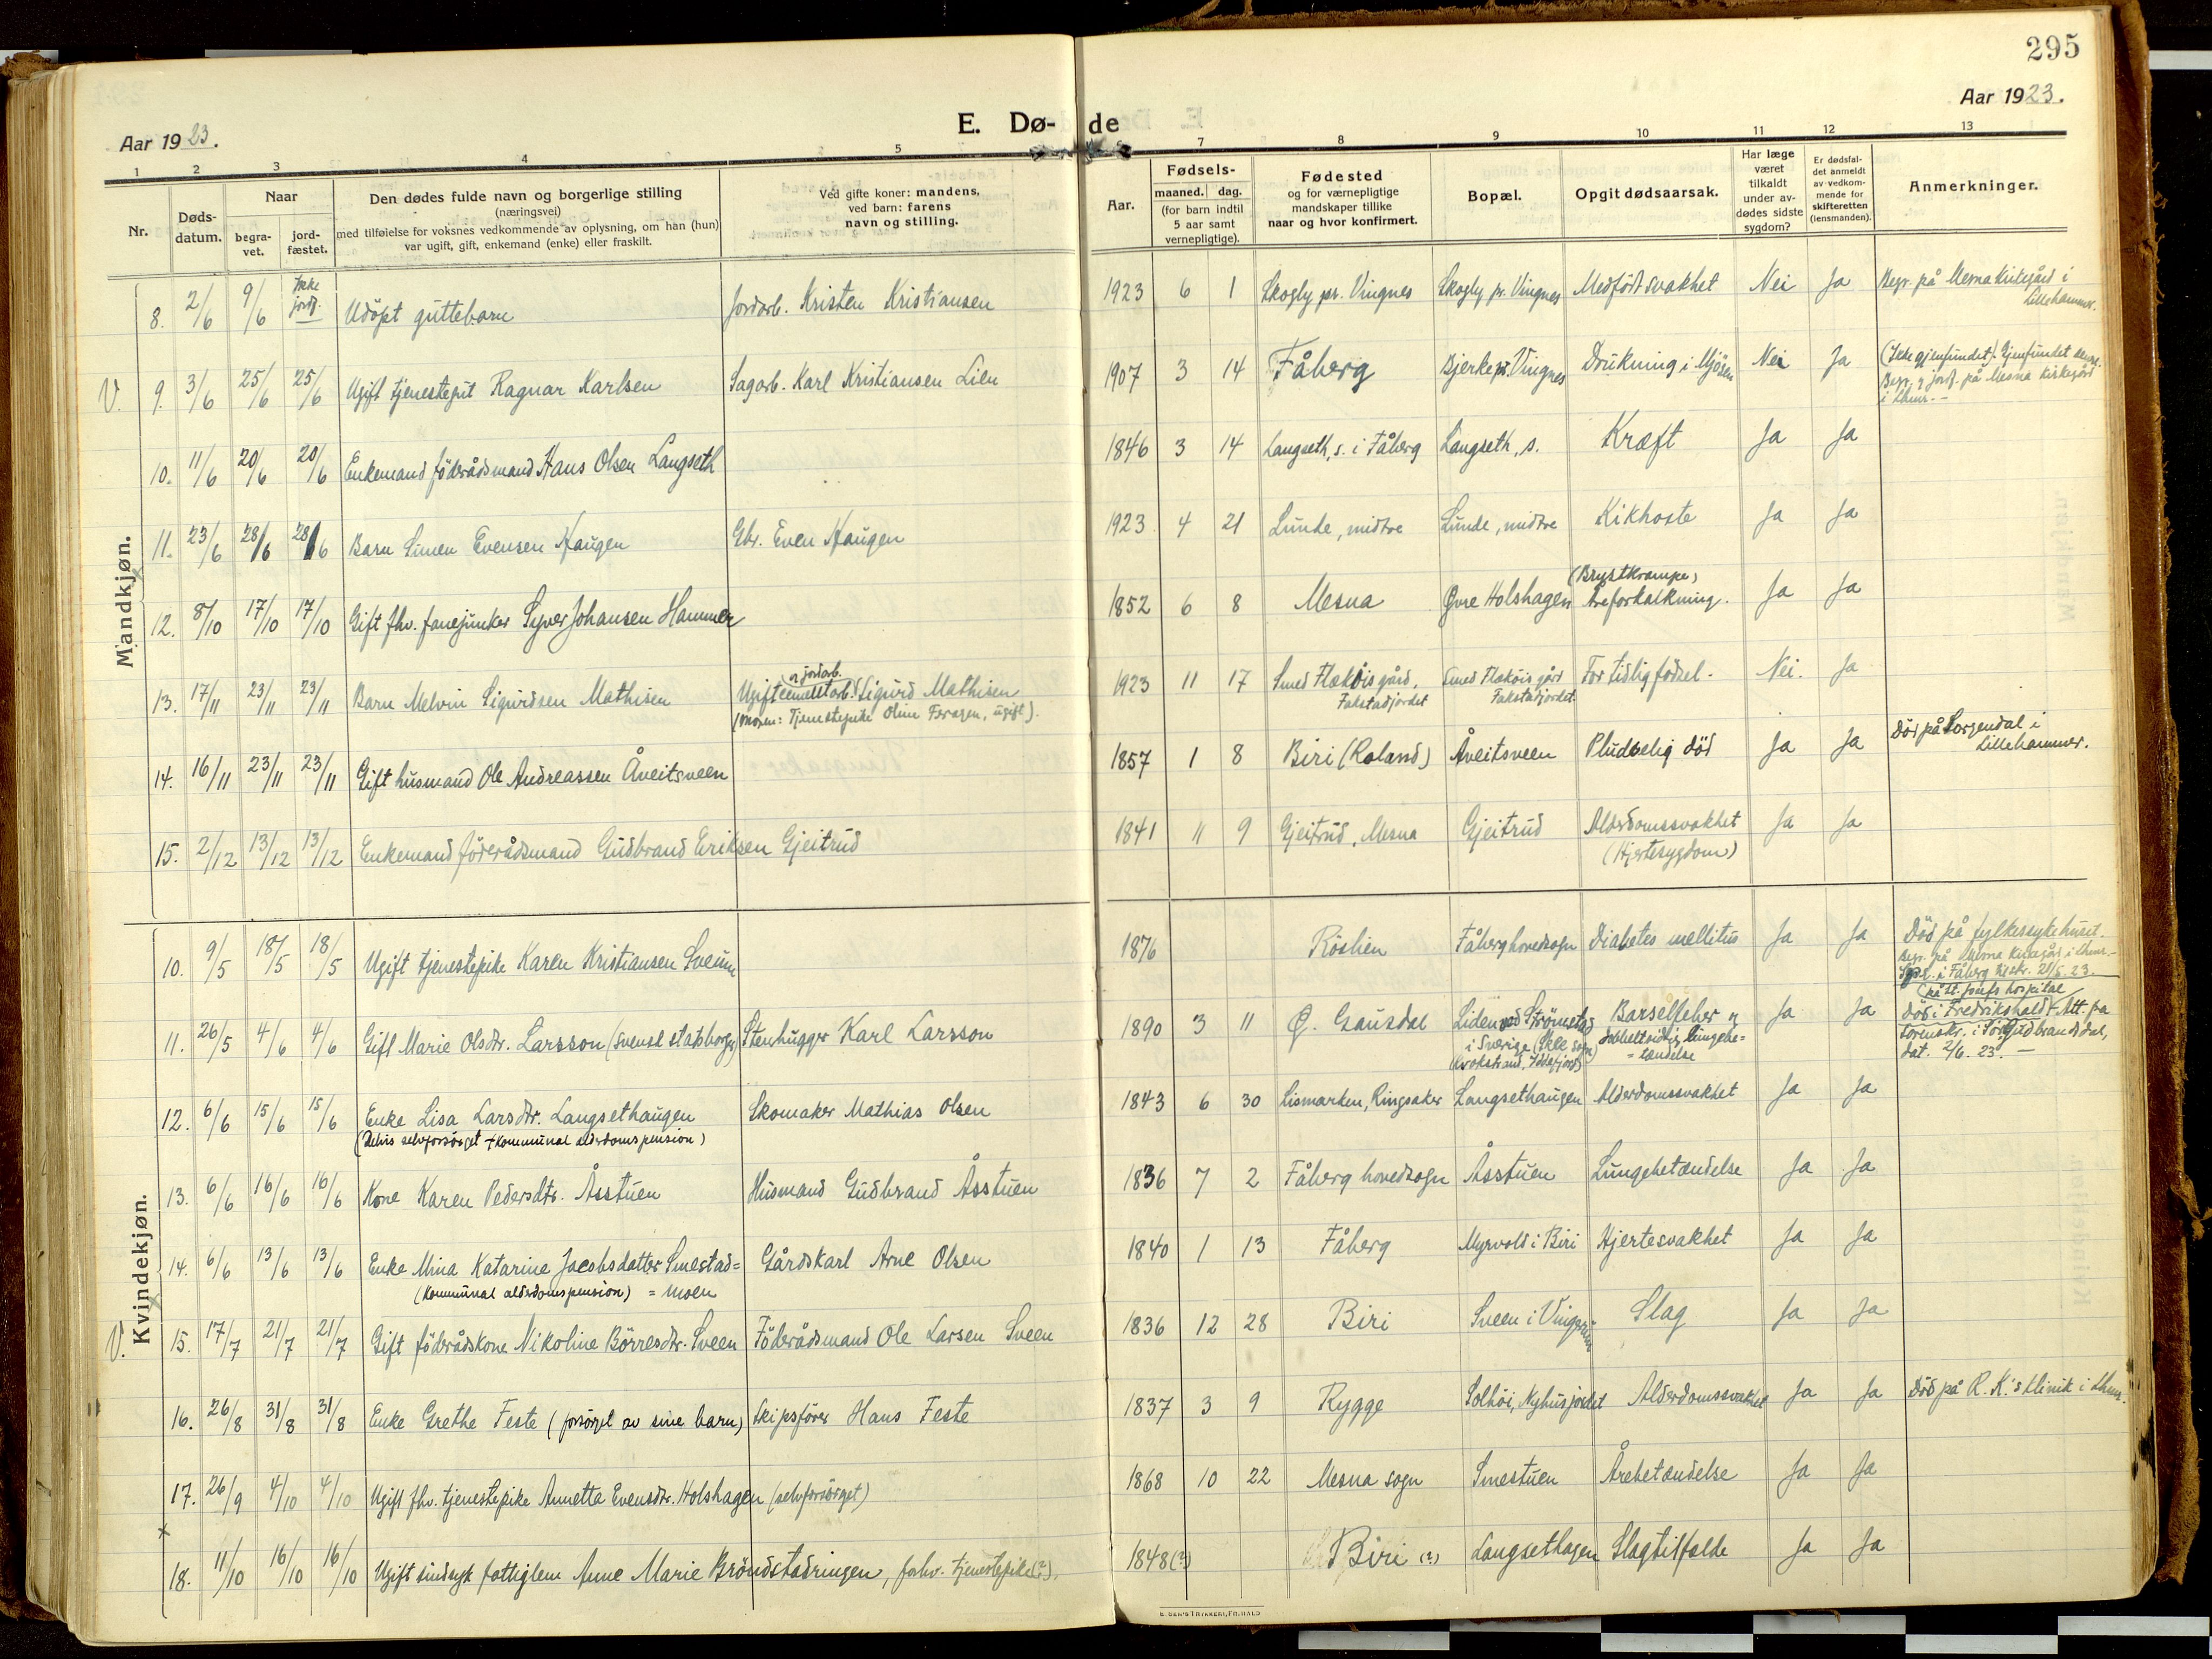 295
Aar 1923.
E. Dø-de
Aar 1923.
1 2 3 4 5 7 8 9 10 11 12 13
Nr.
Døds-datum.
Naar
begra-vet.
jord-fæstet.
Den dødes fulde navn og borgerlige stilling
(næringsvei)
med tilføielse for voksnes vedkommende av oplysning, om han (hun)
var ugift, gift, enkemand (enke) eller fraskilt.
Ved gifte koner: mandens,
ved barn: farens
navn og stilling.
Aar.
Fødsels-
maaned. dag.
(for barn indtil
5 aar samt
vernepligtige).
Fødested
og for værnepligtige
mandskaper tillike
naar og hvor konfirmert.
Bopæl.
Opgit dødsaarsak.
Har læge
været
tilkaldt
under av-
dødes sidste
sygdom?
Er dødsfal-
det anmeldt
av vedkom-
mende for
skifteretten
(lensmanden).
Anmerkninger.
Mandkjøn.
8. 2/6 9/6 Ikke jordf. Udöpt guttebarn Jordarb. Kristen Kristiansen 1923 6 1 Skogly pr. Vingnes Skogly pr. Vingnes Medfödt svakhet Nei Ja Begr. på Mesna Kirkegård i Lillehammer.
V. 9. 3/6 25/6 25/6 Ugift tjenestegut Ragnar Karlsen Sagarb. Karl Kristiansen Lien 1907 3 14 Fåberg Bjerke pr. Vingnes Drukning i Mjösen Nei Ja (Ikke gjenfundet). Gjenfundet
Begr. og jordf. på Mesna kirkegård
i Lhmr.-
10. 11/6 20/6 20/6 Enkemand föderådsmand Hans Olsen Langseth 1846 3 14 Langseth, s. i Fåberg Langseth, s. Kræft Ja Ja
11. 23/6 28/6 28/6 Barn Simen Evensen Haugen Gbr. Even Haugen 1923 4 21 Lunde, midtre Lunde, midtre Kikhoste Ja Ja
12. 8/10 17/10 17/10 Gift fhv. fanejunker Syver Johansen Hammer 1852 6 8 Mesna Øvre Holshagen (Brystkrampe) Areforkalkning. Ja Ja
13. 17/11 23/11 23/11 Barn Melvin Sigurdsen Mathisen Ugift cementarb. og jordarb. Sigurd Mathisen
(moren: Tjenestepike Oline Foragen, ugift). 1923 11 17 Smed Flaköis gård. Fakstadjordet Smed Flaköis gård Fakstadjordet For tidlig födsel. Nei. Ja
14. 16/11 23/11 23/11 Gift husmand Ole Andreassen Åveitsveen 1857 1 8 Biri (Roland) Åveitsveen Pludselig död Ja Ja Död på Lorgendal i Lillehammer.
15. 2/12 13/12 13/12 Enkemand föderådsmand Gudbrand Eriksen Gjeitrud 1841 11 9 Gjeitrud, Mesna Gjeitrud Alderdomssvakhet (Hjertesygdom) Ja Ja
Kvindekjøn.
10. 9/5 18/5 18/5 Ugift tjenestepike Karen Kristiansen Sveum 1876 Röslien Fåberg hovedsogn Diabetes mellitus Ja Ja Död på fylkessykehuset.
Begr. på Mesna Kirkegård i Lhmr.-
i Fåberg 21/5.23.
11. 26/5 4/6 4/6 Gift Marie Olsdtr. Larsson (svensk statsborger) Stenhugger Karl Larsson 1890 3 11 Ø. Gausdal Liden ved Strömstad
i Sverige (Skee sogn)
(Krokstrand, Iddefjord) Barselfeber og
dobbeltsidig lungebe-
=tændelse Ja Ja (på St. Josefs hospital
Död i Fredrikshald. Att. fra
sorenskr. i Sörgudbrandsdal,
dat. 2/6.23.-
12. 6/6 15/6 15/6 Enke Lisa Larsdtr. Langsethaugen
(Delvis selvforsörget + kommunal alderdomspension) Skomaker Mathias Olsen 1843 6 30 Lismarken, Ringsaker Langsethaugen Alderdomssvakhet Ja Ja
13. 6/6 16/6 16/6 Kone Karen Pedersdtr. Åsstuen Husmand Gudbrand Åsstuen 1836 7 2 Fåberg hovedsogn Åsstuen Lungebetændelse Ja Ja
14. 6/6 13/6 13/6 Enke Mina Katarine Jacobsdatter Smestad=
(Kommunal alderdomspension) =moen Gårdskarl Arne Olsen 1840 1 13 Fåberg Myrvold i Biri Hjertesvakhet Ja Ja
V. 15. 17/7 21/7 21/7 Gift föderådskone Nikoline Börresdtr. Sveen Föderådsmand Ole Larsen Sveen 1836 12 28 Biri Sveen i Vingrom Slag Ja Ja
16. 26/8 31/8 31/8 Enke Grethe Feste (forsörget av sine barn) Skipsförer Hans Feste 1837 3 9 Rygge Solhöi, Nyhusjordet Alderdomssvakhet Ja Ja Död på R. K.'s klinik i Lhmr.
17. 26/9 4/10 4/10 Ugift fhv. tjenestepike Annetta Evensdtr. Holshagen (selvforsörget) 1868 10 22 Mesna sogn Smestuen Årebetændelse Ja Ja
x
18. 11/10 16/10 16/10 Ugift sindssyk fattiglem Anne Marie Bröndstadringen, forhv. tjenestepike(?). 1848(?) Biri (?) Langsethagen Slagtilfælde Ja Ja